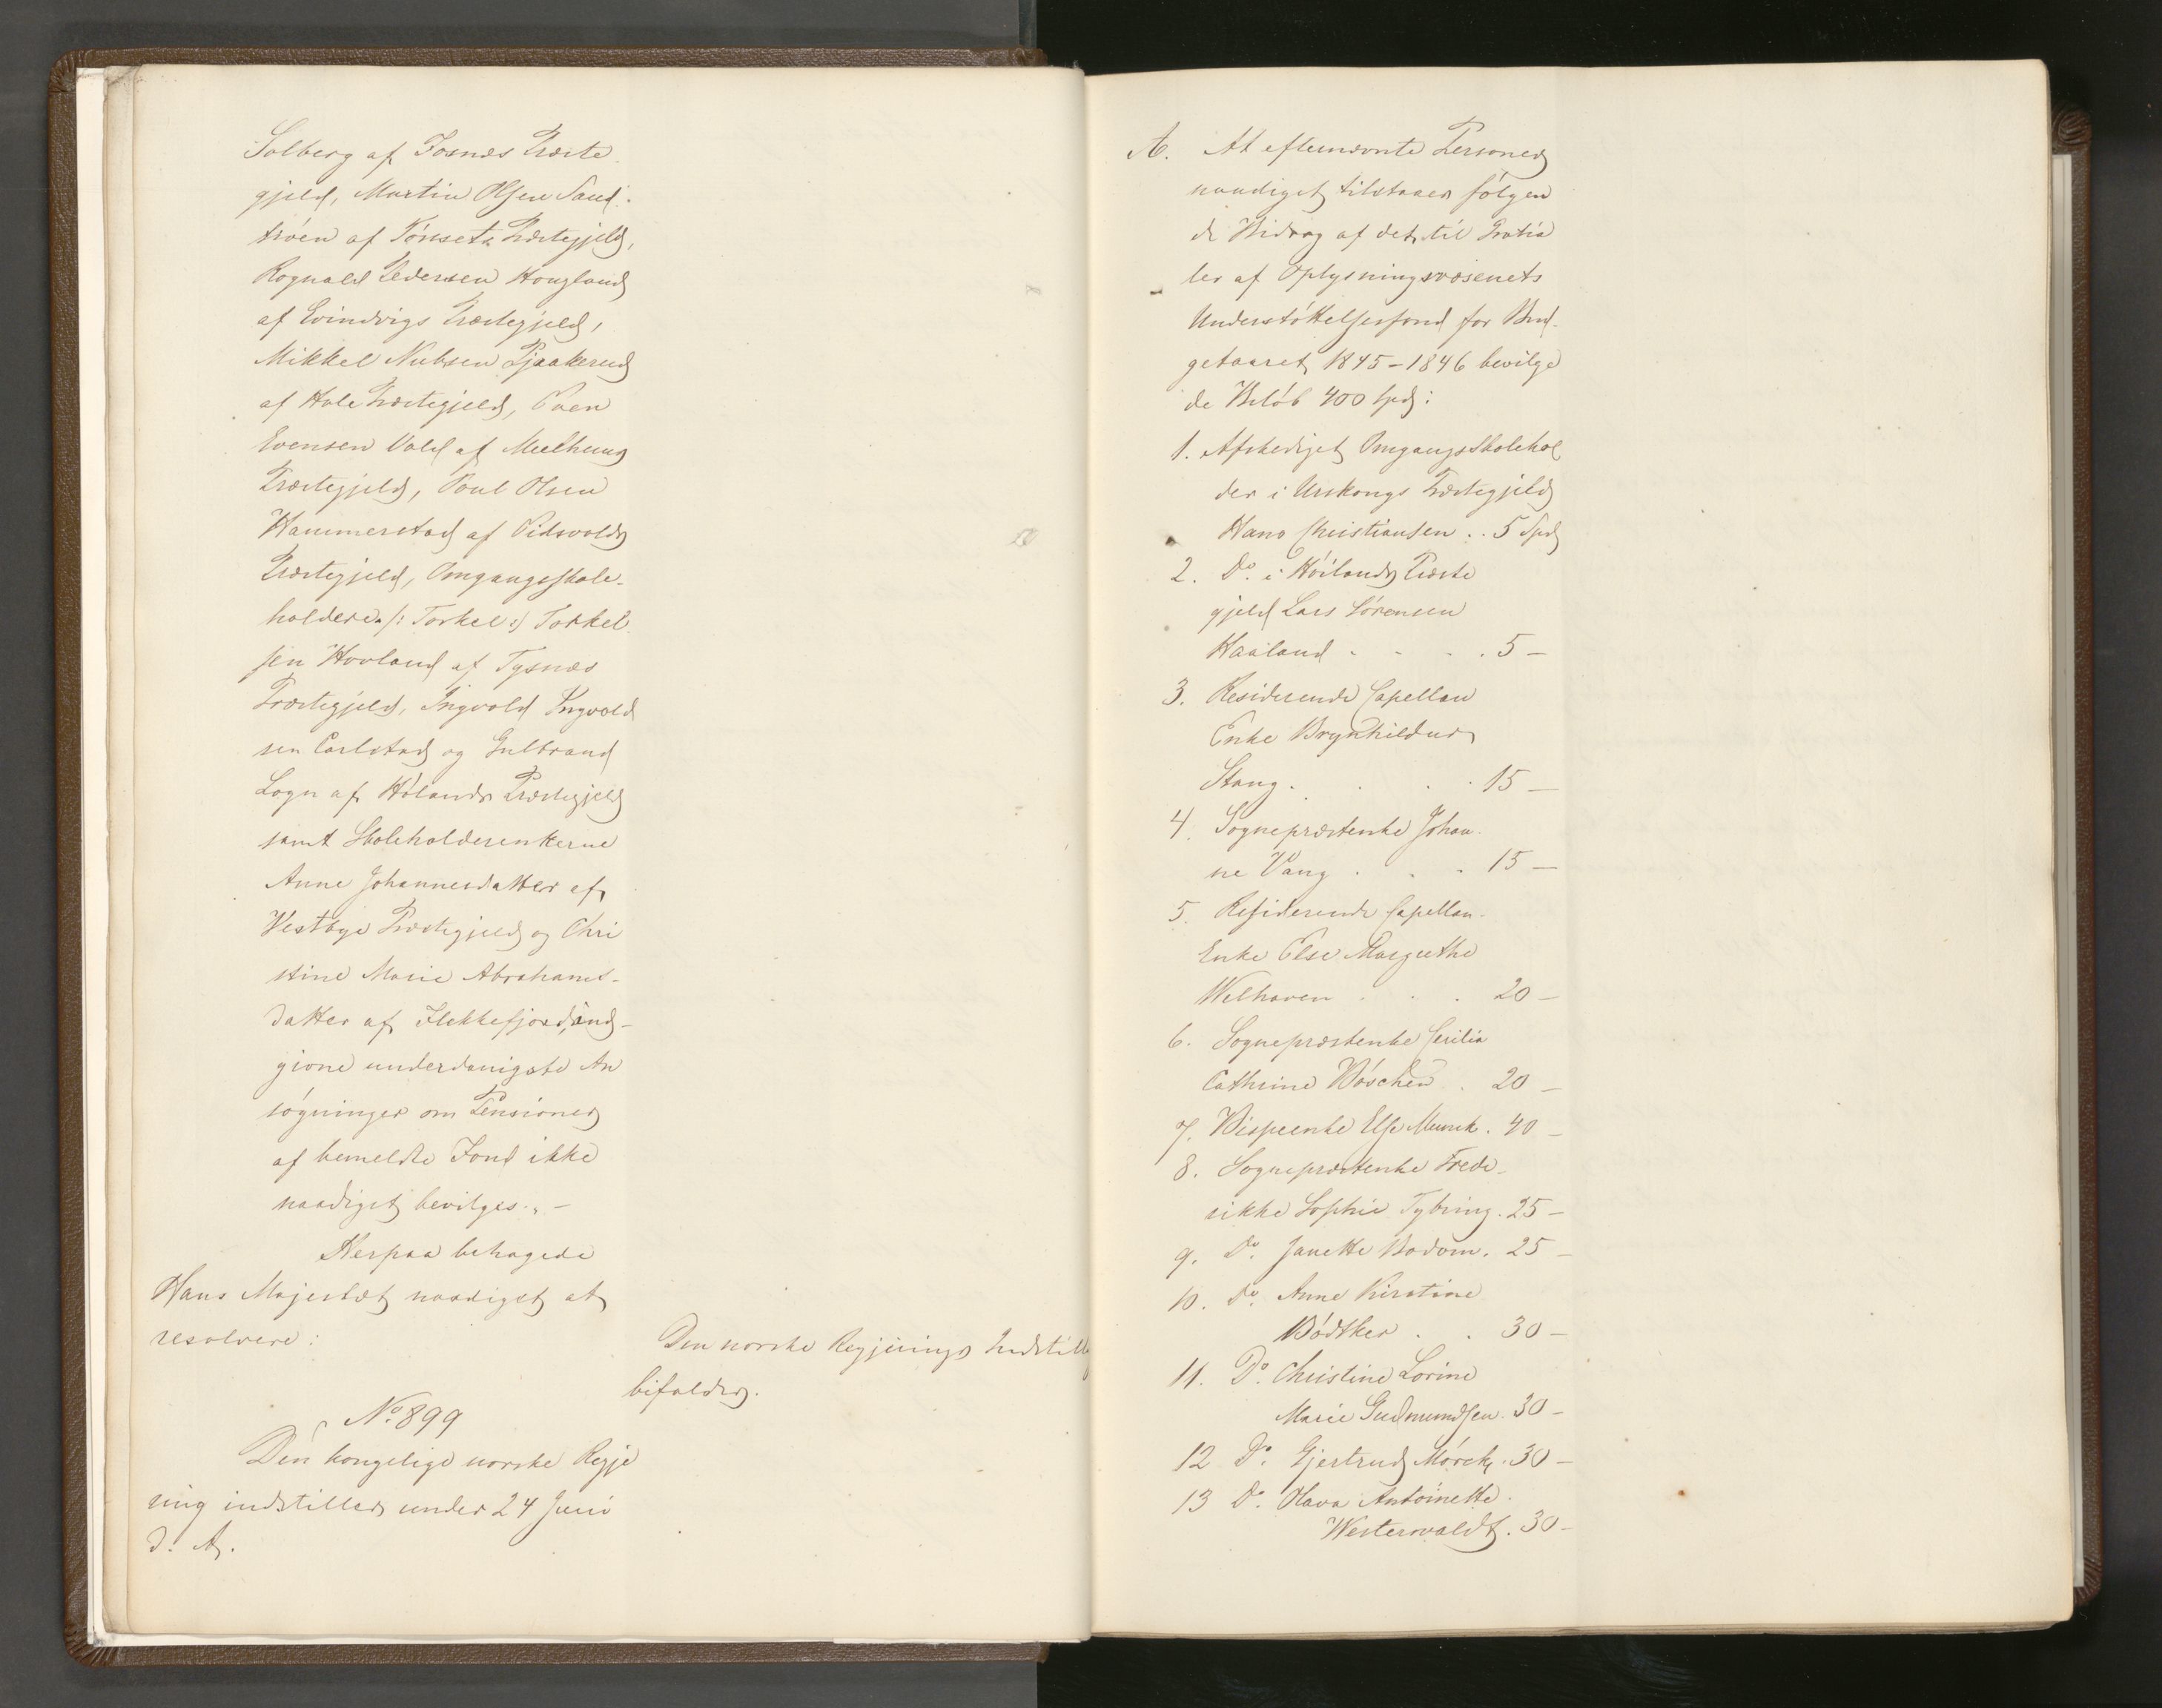 Solberg af Fosnæs Præste
gjeld, Martin Olsen Sand-
tröen af Tönsets Præstegjeld,
Rognald Pedersen Hougland
af Evindvigs Præstegjeld,
Mikkel Nielsen Pjaakerud
af Hole Præstegjeld, Sven
Evensen Vold af Meelhuus
Præstegjeld, Poul Olsen
Hammerstad af Eidsvolds
Præstegjeld, Omgangsskole-
holderen /: Torkel :/ Torkel
sen Hovland af Tysnæs
Præstegjeld, Ingvold Ingvold
sen Carlstad og Gulbrand
Logn af Hölands Præstegjeld
samt Skoleholderenkerne
Anne Johannesdatter af
Vestbye Præstegjeld og Chri
stine Marie Abrahams-
datter af Flekkefjord, ind-
givne underdanigste An
søgninger om Pensioner
af bemeldte Fond ikke
naadigst bevilges. -
Herpaa behagede
Hans Majestæt naadigst at
resolvere:
Den norske Regjerings Indstillg
bifaldes.
No. 899
Den kongelige norske Regje
ring indstiller under 24 Juni
d. A.
A. At eftermævnte Personer
naadigst tilstaaes følgen
de Bidrag af det til Gratia
ler af Oplysningsvæsenets
Understöttelsesfond for Bud-
getaaret 1845-1846 bevilge
de Belöb 400 Spd:
1. Afskediget Omgangsskolehol
der i Urskougs Præstegjeld
Hans Christiansen . . 5 Spd
2. Do. i Höilands Præste
gjeld Lars Sörensen
Haaland - - . . 5 -
3. Residerende Capellan
Enke Brynhildur
Stang . . . . 15 -
4. Sognepræstenke Johan
ne Vang . . . 15 -
5. Residerende Capellan-
Enke Else Margrethe
Welhaven . . . 20 -
6. Sognepræstenke Cecilia
Cathrine Böschen . 20 -
7. Bispeenke Else Munch . 40 -
8. Sognepræstenke Frede-
rikke Sophie Tybring . 25 -
9. Do. Janette Bodom . 25 -
10. Do. Anne Kirstine
Bödtker . . 30 -
11. Do. Christine Lovine
Marie Gudmundsen . 30 -
12 Do. Gjertrud Mörch . 30 -
13 Do. Olava Antoinette
Westerwaldt . 30 -